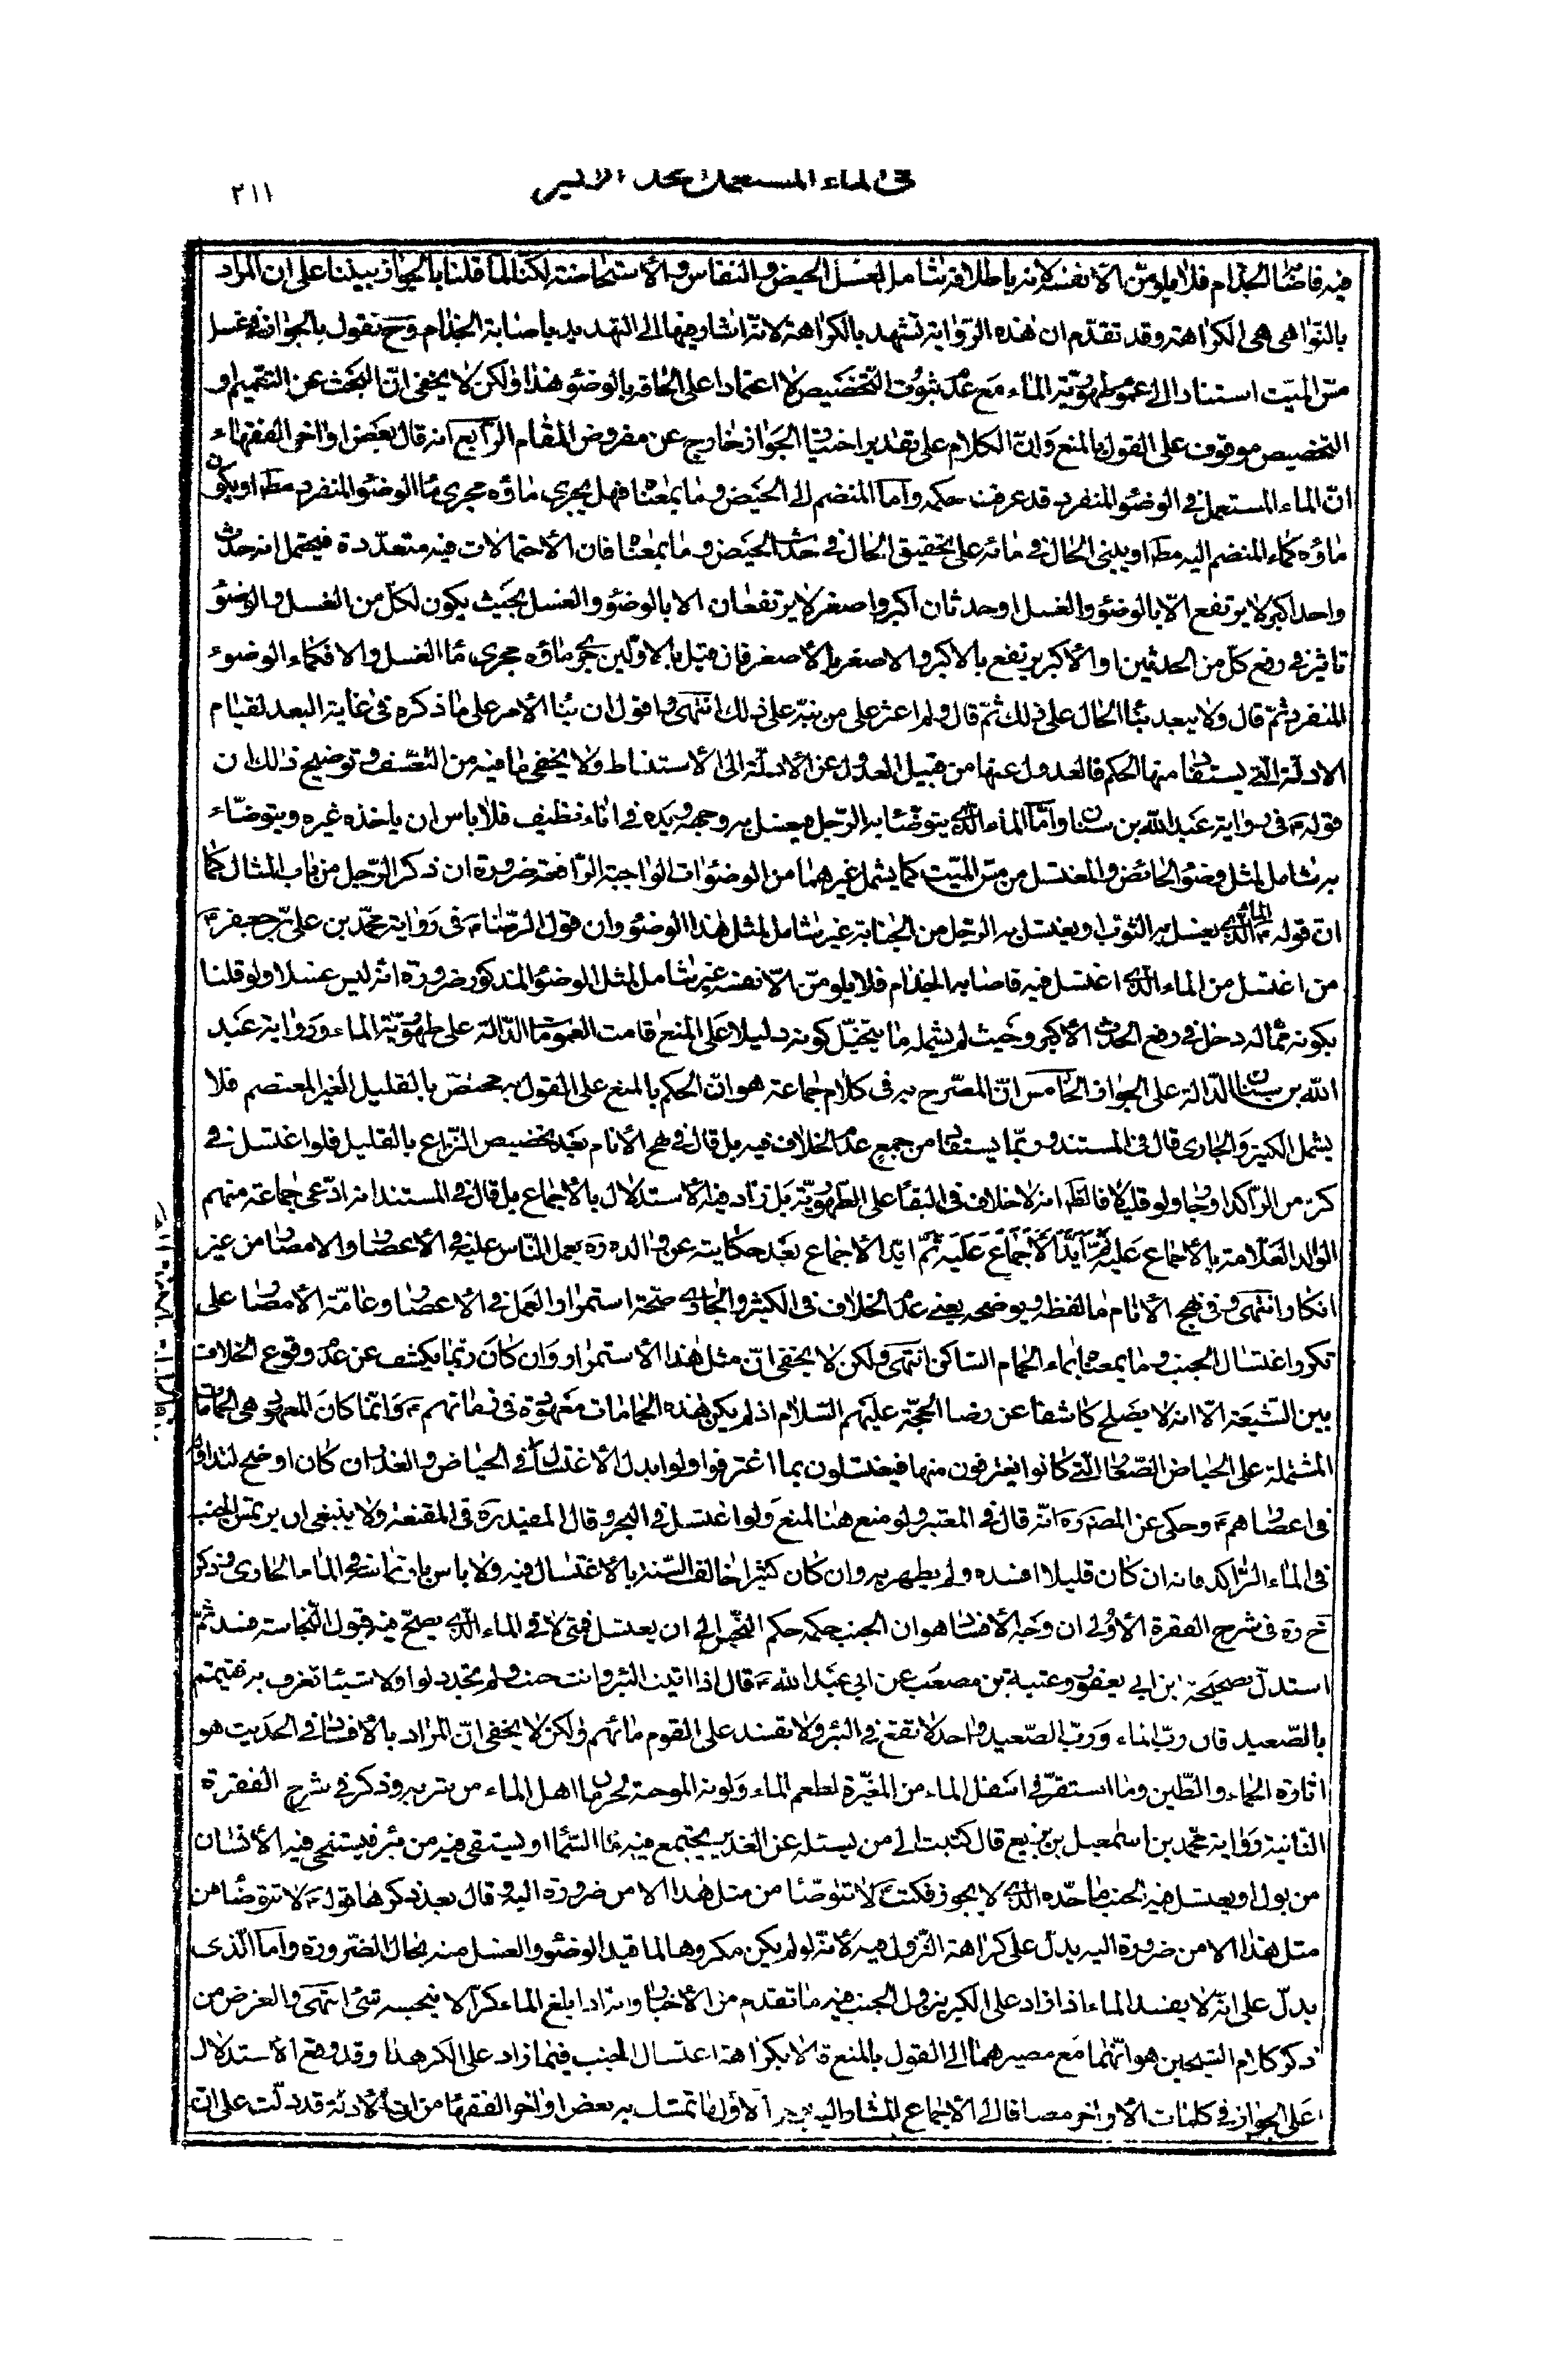 في الماء المستعمل
٢١١
فيه فاصابه الجذام فلا يلومن الا نفسه لانه باطلاقه شامل لغسل الحيض والنفاس والاستحاضة لكنا لما قلنا بالجواز بيننا على ان المراد
بالنواهي هي الكراهة وقد تقدم ان هذه الرواية تشهد بالكراهة لانه اشار فيها الى التهديد باصابة الجذام وح نقول بالجواز في غسل
مس الميت استنادا الى عموم طهورية الماء مع عدم ثبوت التخصيص لا اعتمادا على الحاقه بالوضوء هذا ولكن لا يخفى ان البحث عن التعميم او
التخصيص موقوف على القول بالمنع وان الكلام على تقدير اختيار الجواز خارج عن مفروض المقام الرابع انه قال بعض اواخر الفقهاء
ان الماء المستعمل في الوضوء المنفرد قد عرفت حكمه واما المنضم الى الحيض وما بمعناه فهل يجري ماؤه مجرى ماء الوضوء المنفرد مط او يكون
ماؤه كماء المنضم اليه مط او يبنى الحال في مائه على تحقيق الحال في حدث الحيض وما بمعناه فان الاحتمالات فيه متعددة فيحتمل انه حدث
واحد اكبر لا يرتفع الا بالوضوء والغسل او حدثان اكبر واصغر لا يرتفعان الا بالوضوء والغسل بحيث يكون لكل من الغسل والوضوء
تاثير في رفع كل من الحدثين او الاكبر يرتفع بالاكبر والاصغر بالاصغر فان قيل بالاولين يجري ماؤه مجرى ماء الغسل والا فكماء الوضوء
المنفرد ثم قال ولا يبعد بناء الحال على ذلك ثم قال ولم اعثر على من نبه على ذلك انتهى واقول ان بناء الامر على ما ذكره في غاية البعد لقيام
الادلة التي يستفاد منها الحكم فالعدول عنها من قبيل العدول عن الادلة الى الاستنباط ولا يخفى ما فيه من التعسف وتوضيح ذلك ان
قوله ع في رواية عبد الله بن سنان واما الماء الذي يتوضا به الرجل فيغسل به وجهه ويده في اناء نظيف فلا باس ان ياخذه غيره ويتوضاء
به شامل لمثل وضوء الحائض والمغتسل من مس الميت كما يشمل غيرهما من الوضوءات الواجبة الرافعة ضرورة ان ذكر الرجل من باب المثال كما
ان قوله ع الماء الذي يغسل به الثوب او يغتسل به الرجل من الجنابة غير شامل لمثل هذا الوضوء وان قول الرضا ع في رواية محمد بن علي بن جعفر ع
من اغتسل من الماء الذي اغتسل فيه فاصابه الجذام فلا يلومن الا نفسه غير شامل لمثل الوضوء المذكور ضرورة انه ليس غسلا ولو قلنا
بكونه مما له دخل في رفع الحدث الاكبر وحيث لم يشمله ما يتخيل كونه دليلا على المنع قامت العمومات الدالة على طهورية الماء ورواية عبد
الله بن سنان الدالة على الجواز الخامس ان المصرح به في كلام جماعة هو ان الحكم بالمنع على القول به مختص بالقليل الغير المعتصم فلا
يشمل الكثير والجاري قال في المستند وربما يستفاد من جمع عدم الخلاف فيه بل قال في هج الانام بعد تخصيص النزاع بالقليل فلو اغتسل في
كر من الراكد او جار ولو قليلا فالظ انه لا خلاف في البقاء على الطهورية بل زاد فيه الاستدلال بالاجماع بل قال في المستند انه ادعى جماعة منهم
الوالد العلامة ره الاجماع عليه ثم ايد الاجماع عليه ثم ايد الاجماع بعد حكايته عن والده ره بعمل الناس عليه في الاعصار والامصار من غير
انكار انتهى وفي نهج الانام ما لفظه ويوضحه يعني عدم الخلاف في الكثير والجاري صحة استمرار العمل في الاعصار وعامة الامصار على
تكرر اغتسال الجنب وما بمعناه بماء الحمام الساكن انتهى ولكن لا يخفى ان مثل هذا الاستمرار وان كان ربما يكشف عن عدم وقوع الخلاف
بين الشيعة الا انه لا يصلح كاشفا عن رضا الحجة عليهم السلام اذ لم يكن هذه الحمامات معهودة في زمانهم ع وانما كان المعهود هي الحمامات
المشتملة على الحياض الصغار التي كانوا يغترفون منها فيغتسلون بما اغترفوا ولو ابدل الاغتسال في الحياض والغدران كان اوضح لتداوله
في اعصارهم ع وحكى عن المص ره انه قال في المعتبر ولو منع هنا لمنع ولو اغتسل في البحر وقال المفيد ره في المقنعة ولا ينبغي ان يرتمس الجنب
في الماء الراكد فانه ان كان قليلا افسده ولم يطهر به وان كان كثيرا خالف السنة بالاغتسال فيه ولا باس بارتماسه في الماء الجاري وذكر
خ ره في شرح الفقرة الاولى ان وجه الافساد هو ان الجنب حكمه حكم النجس الى ان يغتسل فمتى لاقى الماء الذي يصح فيه قبول النجاسة فسد ثم
استدل بصحيحة ابن ابي يعفور وعنبسة بن مصعب عن ابي عبد الله ع قال اذا اتيت البئر وانت جنب ولم تجد دلوا ولا شيئا تغرف به فتيمم
بالصعيد فان رب الماء ورب الصعيد واحد لا تقع في البئر ولا تفسد على القوم مائهم ولكن لا يخفى ان المراد بالافساد في الحديث هو
اثارة الحماء والطين وما استقر في اسفل الماء من المغيرة لطعم الماء ولونه الموجبة لحرمان اهل الماء من شربه وذكر في شرح الفقرة
الثانية رواية محمد بن اسمعيل بن بزيع قال كتبت الى من يسئله عن الغدير يجتمع فيه ماء السماء او يستقى فيه من بئر فيستنجي فيه الانسان
من بول او يغتسل فيه الجنب ما حده الذي لا يجوز فكتب لا تتوضا من مثل هذا الا من ضرورة اليه وقال بعد ذكرها قوله ع لا تتوضا من
مثل هذا الا من ضرورة اليه يدل على كراهة النزول فيه لانه لو لم يكن مكروها لما قيد الوضوء والغسل منه بحال الضرورة واما الذي
يدل على انه لا يفسد الماء اذا زاد على الكر بنزول الجنب فيه ما تقدم من الاخبار وانه اذا بلغ الماء كرا لا ينجسه شئ انتهى والغرض من
ذكر كلام الشيخين هو انهما مع مصيرهما الى القول بالمنع قالا بكراهة اغتسال الجنب فيما زاد على الكر هذا وقد وقع الاستدلال
على الجواز في كلمات الاواخر مضافا الى الاجماع المشار اليه الاول ما تمسك به بعض اواخر الفقهاء من ان الادلة قد دلت على ان